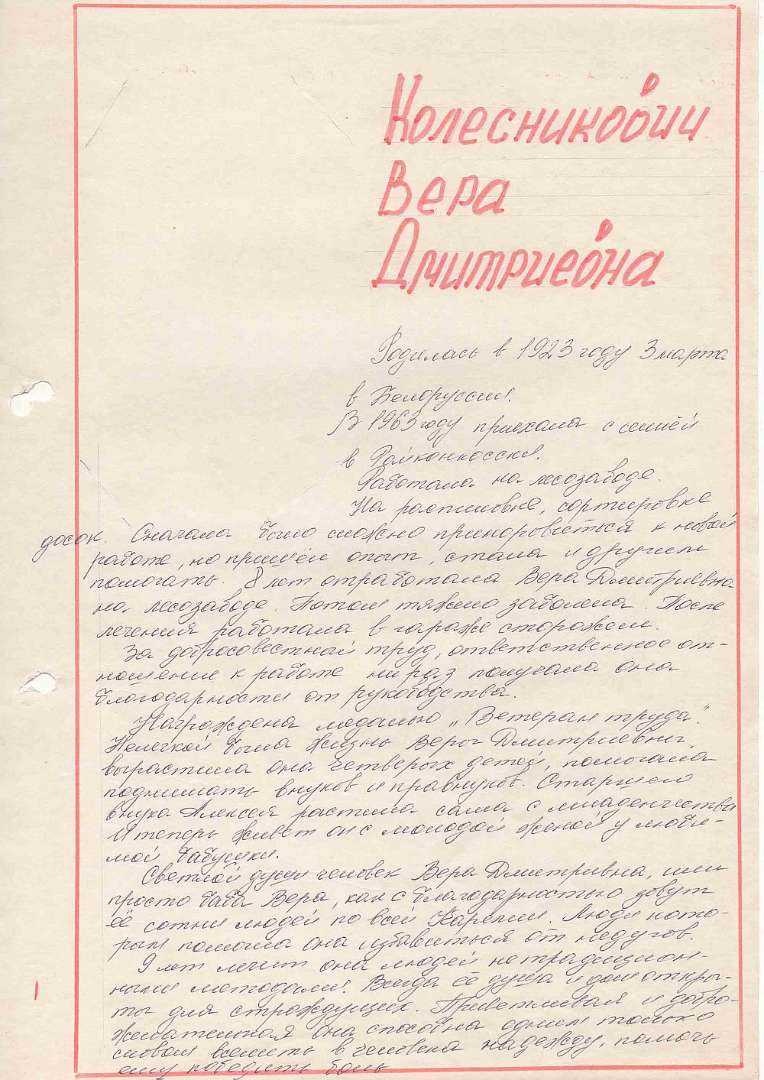 Колесникович
Вера
Дмитриевна
Родилась в 1923 году 3 марта
в Белоруссии.
В 1963 году приехала с семьёй
в Райконкоски.
Работала на лесозаводе.
На распиловке, сортировке
досок. Сначала было сложно приноровиться к новой
работе, но пришёл опыт, стала и другим
помогать. 8 лет отработала Вера Дмитриевна
на лесозаводе. Потом тяжело заболела. После
лечения работала в гараже сторожем.
За добросовестный труд, ответственное от-
ношение к работе ни раз получала она
благодарности от руководства.
Награждена медалью „Ветеран труда".
Нелегкой была жизнь Веры Дмитриевны,
вырастила она четверых детей, помогала
поднимать внуков и правнуков. Старшего
внука Алексея растила сама с младенчества
И теперь живёт он с молодой женой у люби-
мой бабушки.
Светлой души человек Вера Дмитривна, или
просто баба Вера, как с благодарностью зовут
её сотни людей по всей Карелии. Люди кото-
рым помогла она избавиться от недугов.
9 лет лечит она людей нетрадицион-
ными методами. Всегда её душа и дом откры-
ты для страждущих. Приветливая и добро-
желательная она способна одним только
словом вселить в человека надежду, помочь
ему победить боль